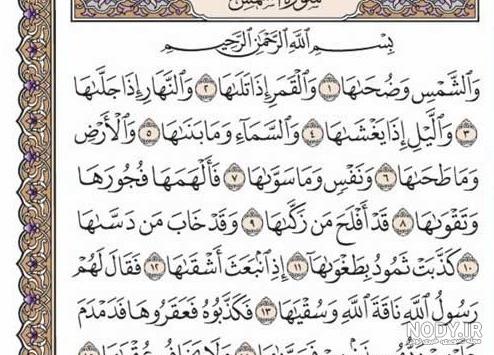 سُورَةُ الشَّمْسِ
بِسْمِ اللَّهِ الرَّحْمَٰنِ الرَّحِيمِ
وَالشَّمْسِ وَضُحَىٰهَا ١ وَالْقَمَرِ إِذَا تَلَىٰهَا ٢ وَالنَّهَارِ إِذَا جَلَّىٰهَا
٣ وَاللَّيْلِ إِذَا يَغْشَىٰهَا ٤ وَالسَّمَاءِ وَمَا بَنَىٰهَا ٥ وَالْأَرْضِ
وَمَا طَحَىٰهَا ٦ وَنَفْسٍ وَمَا سَوَّىٰهَا ٧ فَأَلْهَمَهَا فُجُورَهَا
وَتَقْوَىٰهَا ٨ قَدْ أَفْلَحَ مَن زَكَّىٰهَا ٩ وَقَدْ خَابَ مَن دَسَّىٰهَا
١٠ كَذَّبَتْ ثَمُودُ بِطَغْوَىٰهَا ١١ إِذِ انبَعَثَ أَشْقَىٰهَا ١٢ فَقَالَ لَهُمْ
رَسُولُ اللَّهِ نَاقَةَ اللَّهِ وَسُقْيَٰهَا ١٣ فَكَذَّبُوهُ فَعَقَرُوهَا فَدَمْدَمَ
NODY.IR